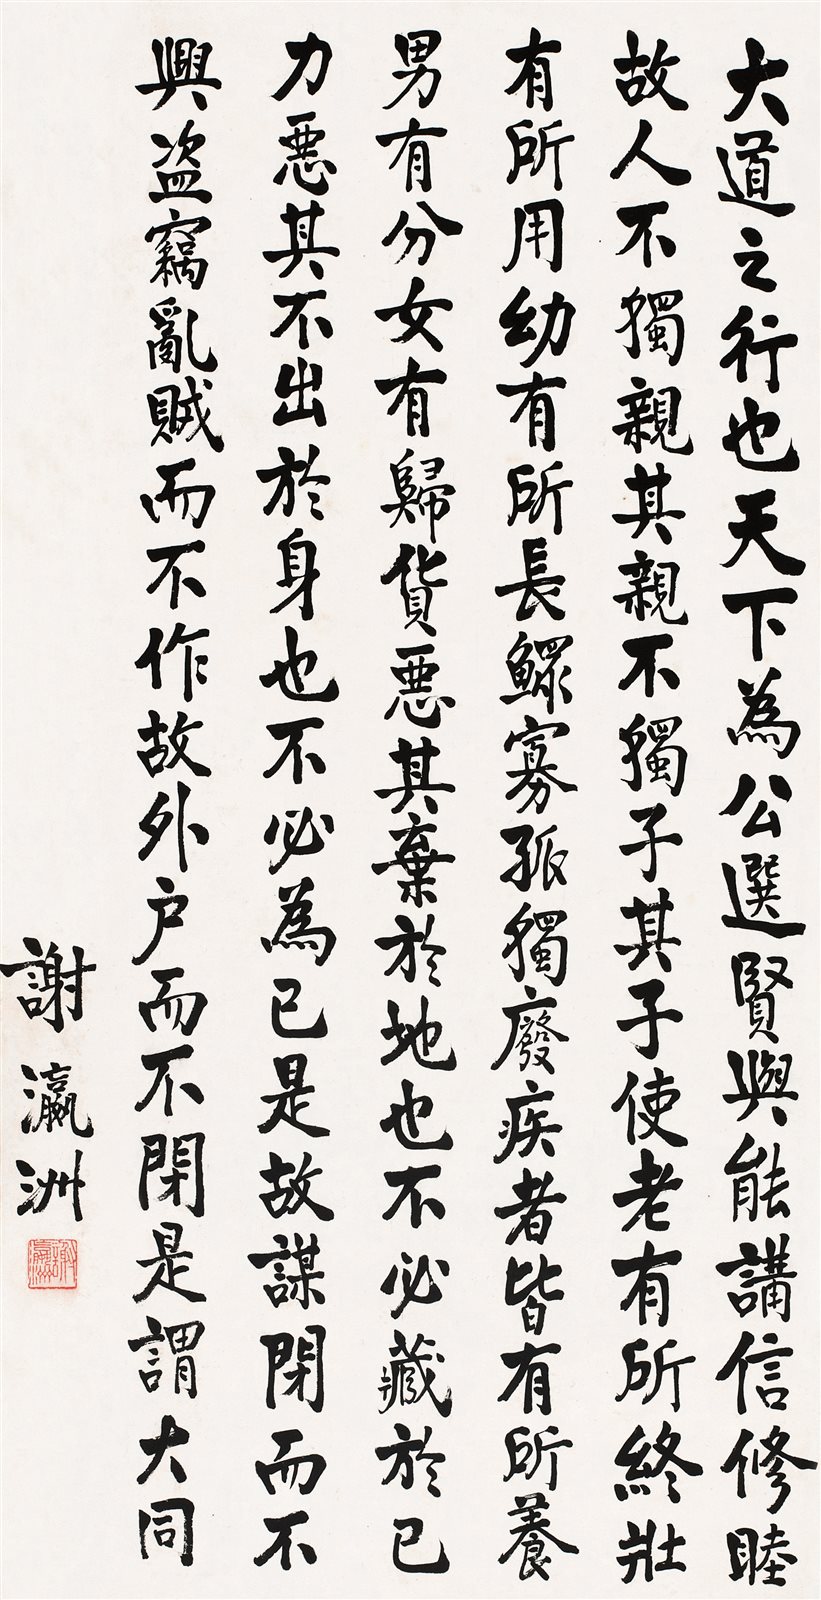 大道之行也天下為公選賢與能講信修睦
故人不獨親其親不獨子其子使老有所終壯
有所用幼有所長鰥寡孤獨廢疾者皆有所養
男有分女有歸貨惡其棄於地也不必藏於己
力惡其不出於身也不必為己是故謀閉而不
興盜竊亂賊而不作故外戶而不閉是謂大同
謝瀛洲
謝瀛洲